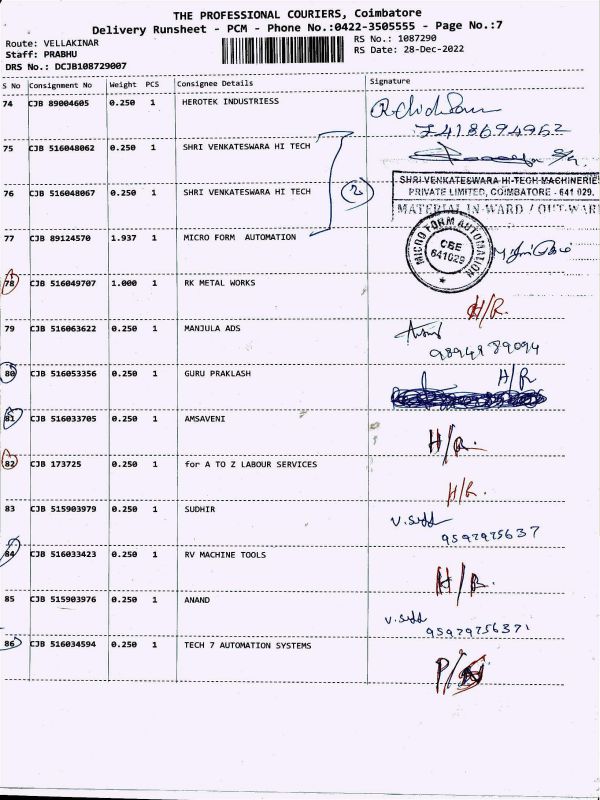 THE PROFESSIONAL COURIERS, Coimbatore
Delivery Runsheet - PCM - Phone No.:0422-3505555 - Page No.:7
Route: VELLAKINAR
RS No.: 1087290
Staff: PRABHU
RS Date: 28-Dec-2022
DRS No.: DCJB108729007
S No Consignment No Weight PCS Consignee Details Signature
74 CJB 89004605 0.250 1 HEROTEK INDUSTRIESS
75 CJB 516048062 0.250 1 SHRI VENKATESWARA HI TECH
SHRI VENKATESWARA HI-TECH MACHINERIE
PRIVATE LIMITED, COIMBATORE - 641 029.
MATERIAL IN-WARD / OUT-WAR
76 CJB 516048067 0.250 1 SHRI VENKATESWARA HI TECH
2
77 CJB 89124570 1.937 1 MICRO FORM AUTOMATION
MICRO FORM AUTOMATION
CBE
641029
78 CJB 516049707 1.000 1 RK METAL WORKS
H/R.
79 CJB 516063622 0.250 1 MANJULA ADS
80 CJB 516053356 0.250 1 GURU PRAKLASH
H/R
81 CJB 516033705 0.250 1 AMSAVENI
H/R.
82 CJB 173725 0.250 1 for A TO Z LABOUR SERVICES
H/R.
83 CJB 515903979 0.250 1 SUDHIR
84 CJB 516033423 0.250 1 RV MACHINE TOOLS
H/R.
85 CJB 515903976 0.250 1 ANAND
86 CJB 516034594 0.250 1 TECH 7 AUTOMATION SYSTEMS